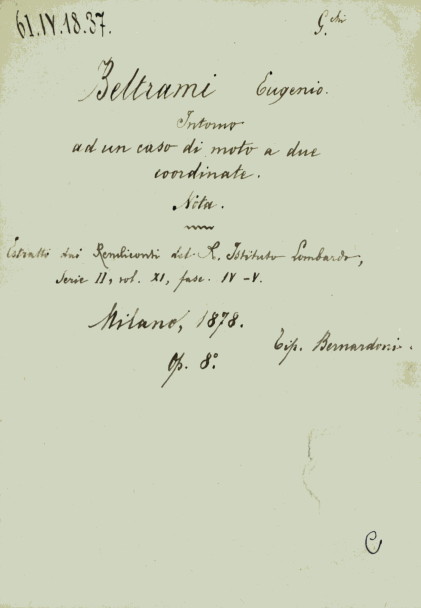 61.IV.18.37.
G.chi
Beltrami Eugenio.
Intorno
ad un caso di moto a due
coordinate.
Nota.
Estratto dai Rendiconti del R. Istituto Lombardo,
Serie II, vol. XI, fasc. IV-V.
Milano, 1878.
Tip. Bernardoni.
Op. 8°.
C